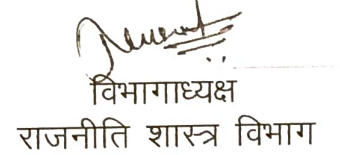 विभागाध्यक्ष
राजनीति शास्त्र विभाग